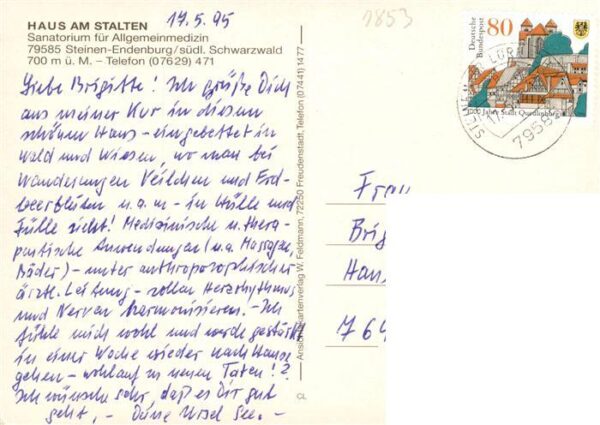 17.5.95
1853
HAUS AM STALTEN
Sanatorium für Allgemeinmedizin
79585 Steinen-Endenburg/südl. Schwarzwald
700 m ü. M. – Telefon (07629) 471
Liebe Brigitte! Ich grüße Dich
aus meiner Kur in diesem
schönen Haus – eingebettet in
Wald und Wiesen, wo man bei
Wanderungen Veilchen und Erd-
beerblüten u.a.m. – in Hülle und
Fülle sieht! Medizinische u. thera-
peutische Anwendungen (u.a. Massagen,
Bäder) – unter anthroposophischer
ärztl. Leitung – sollen Herzrhythmus
und Nerven harmonisieren. – Ich
fühle mich wohl und werde gestärkt
in einer Woche wieder nach Hause
gehen – wohlauf zu neuen Taten!?
Ich wünsche sehr, daß es Dir gut
geht, – Deine Ursel See. –
Ansichtskartenverlag W. Feldmann, 72250 Freudenstadt, Telefon (07441) 1477
CL
Deutsche
Bundespost
80
1000 Jahre Stadt Quedlinburg
STEINEN
7958
Frau
Brig
Han
764